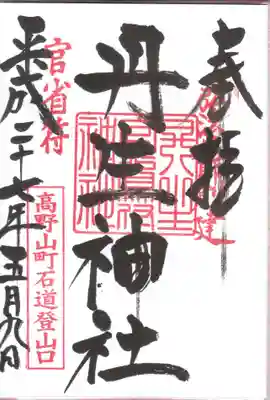 奉拝
丹生神社
官省符
高野山町石道登山口
平成二十七年五月九日